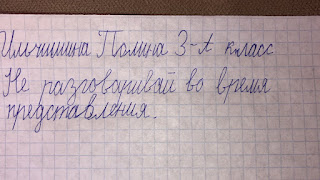 Ильчишина Полина 3-А класс
Не разговаривай во время
представления.